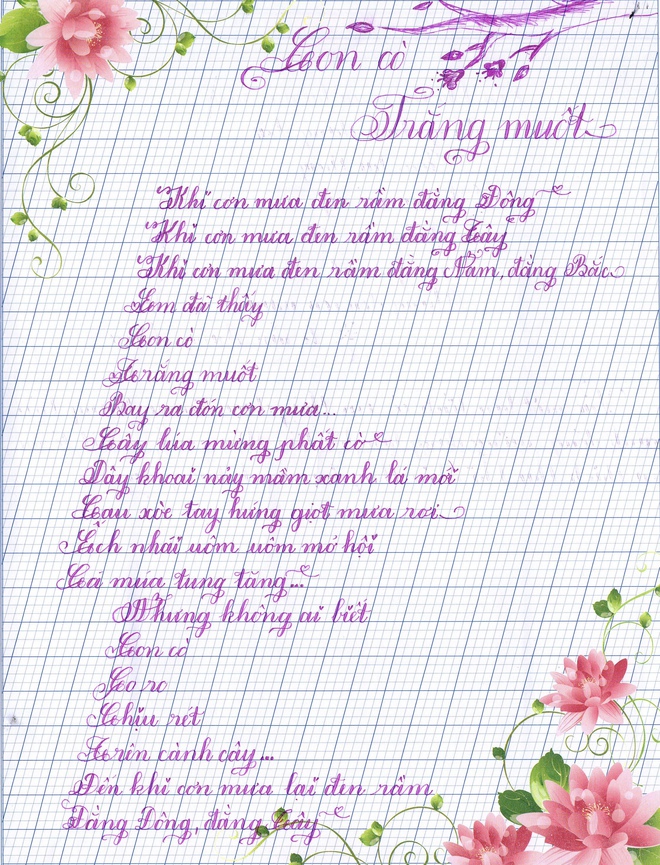 Con cò
Trắng muốt
Khi cơn mưa đen rầm đằng Đông
Khi cơn mưa đen rầm đằng Tây
Khi cơn mưa đen rầm đằng Nam, đằng Bắc
Em đã thấy
Con cò
Trắng muốt
Bay ra đón cơn mưa...
Cây lúa mừng phất cờ
Dây khoai nảy mầm xanh lá mới
Cau xòe tay hứng giọt mưa rơi
Ếch nhái uôm uôm mở hội
Cá múa tung tăng...
Nhưng không ai biết
Con cò
Co ro
Chịu rét
Trên cành cây...
Đến khi cơn mưa lại đen rầm
Đằng Đông, đằng Tây